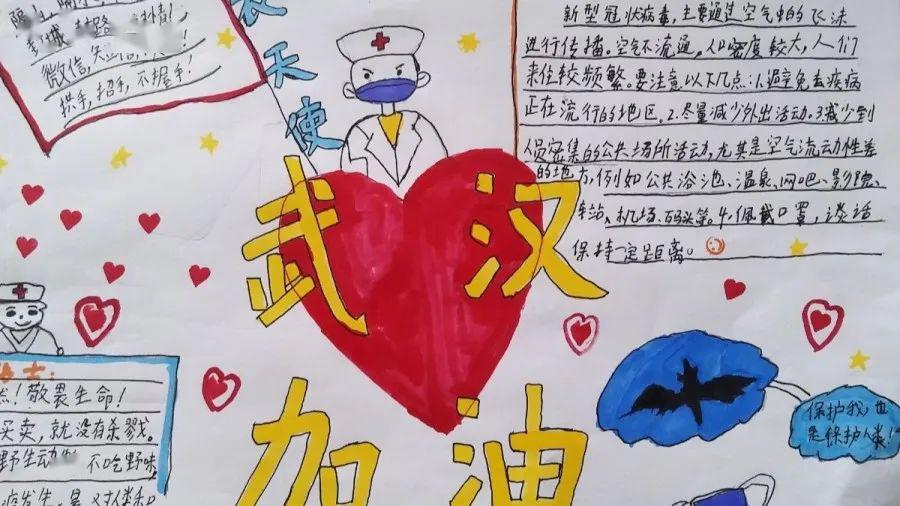 封城
微信,
拱手,招手,不握手!
衣天使
武汉
加油
新型冠状病毒,主要通过空气中的飞沫
进行传播。空气不流通,人口密度较大,人们
来往较频繁。要注意以下几点:1.避免去疾病
正在流行的地区。2.尽量减少外出活动。3.减少到
人员密集的公共场所活动,尤其是空气流动性差
的地方,例如公共浴池、温泉、网吧、影院、
车站、机场、码头等。4.佩戴口罩,谈话
保持一定距离。
点!敬畏生命!
买卖,就没有杀戮。
野生动 不吃野味
病发生,是对人类和
保护我,也
是保护人类!